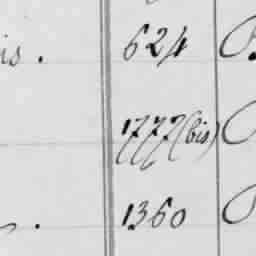 is. 624
1777 (bis)
1360